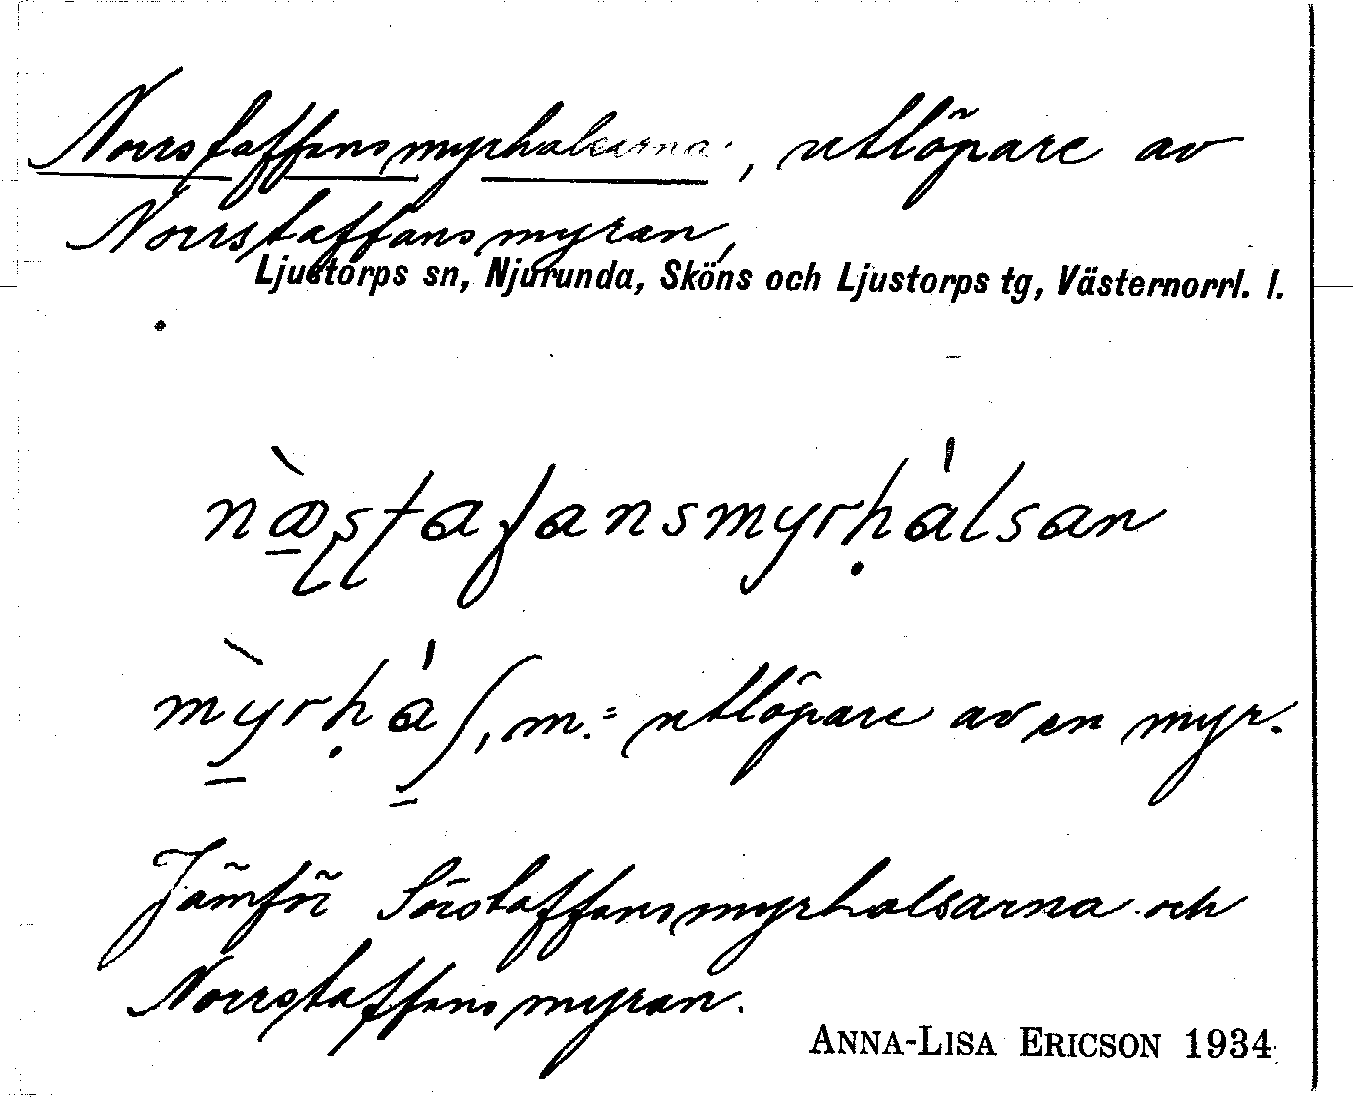 Norrstaffansmyrhalsarna, utlöpare av
Norrstaffansmyran,
Ljustorps sn, Njurunda, Sköns och Ljustorps tg, Västernorrl. l.
næ̀stafansmyrhálsan
mỳrhás, m. = utlöpare av en myr.
Jämför Sörstaffansmyrhalsarna och
Norrstaffansmyran.
ANNA-LISA ERICSON 1934